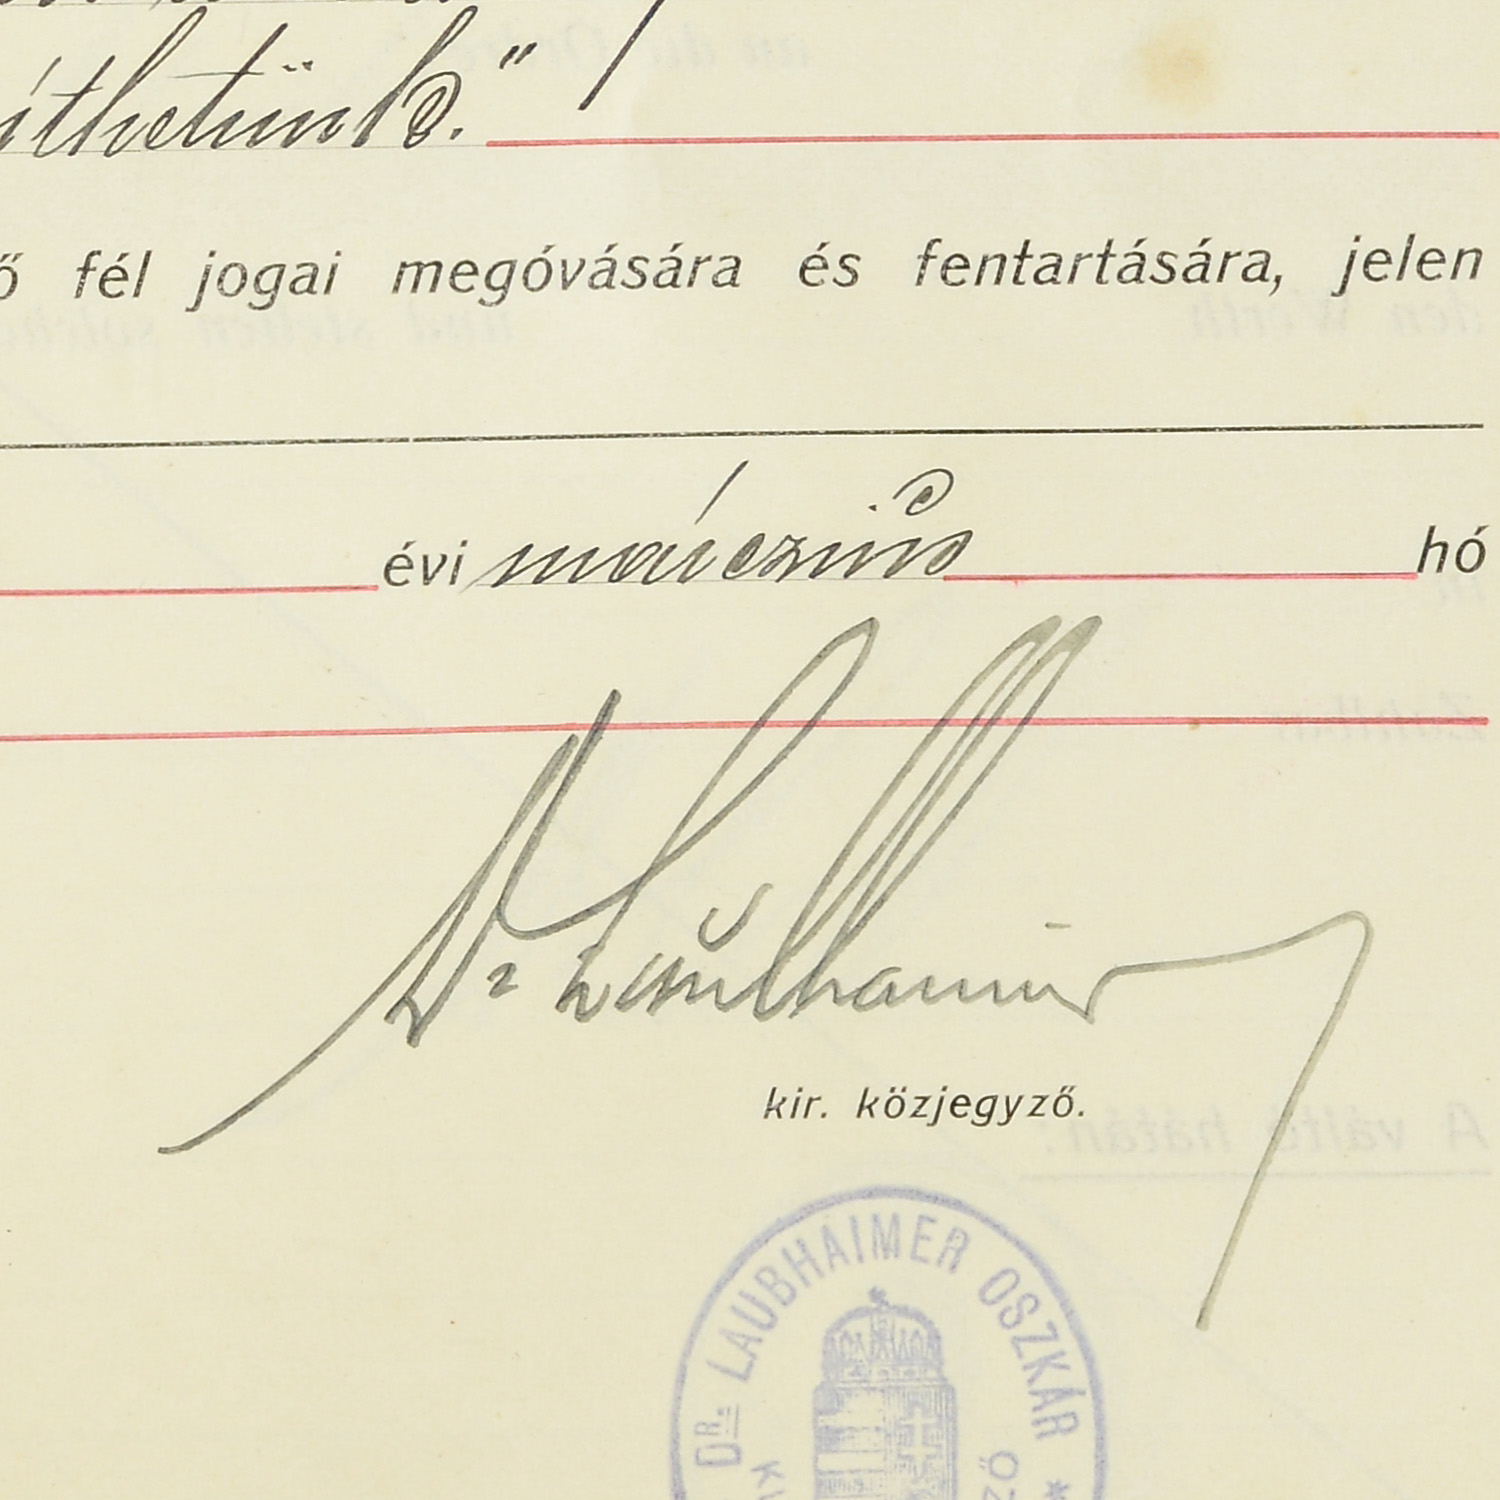 íthetünk."
ő fél jogai megóvására és fentartására, jelen
évi márczius hó
Dr Laubhaimer
kir. közjegyző.
DR. LAUBHAIMER OSZKÁR *